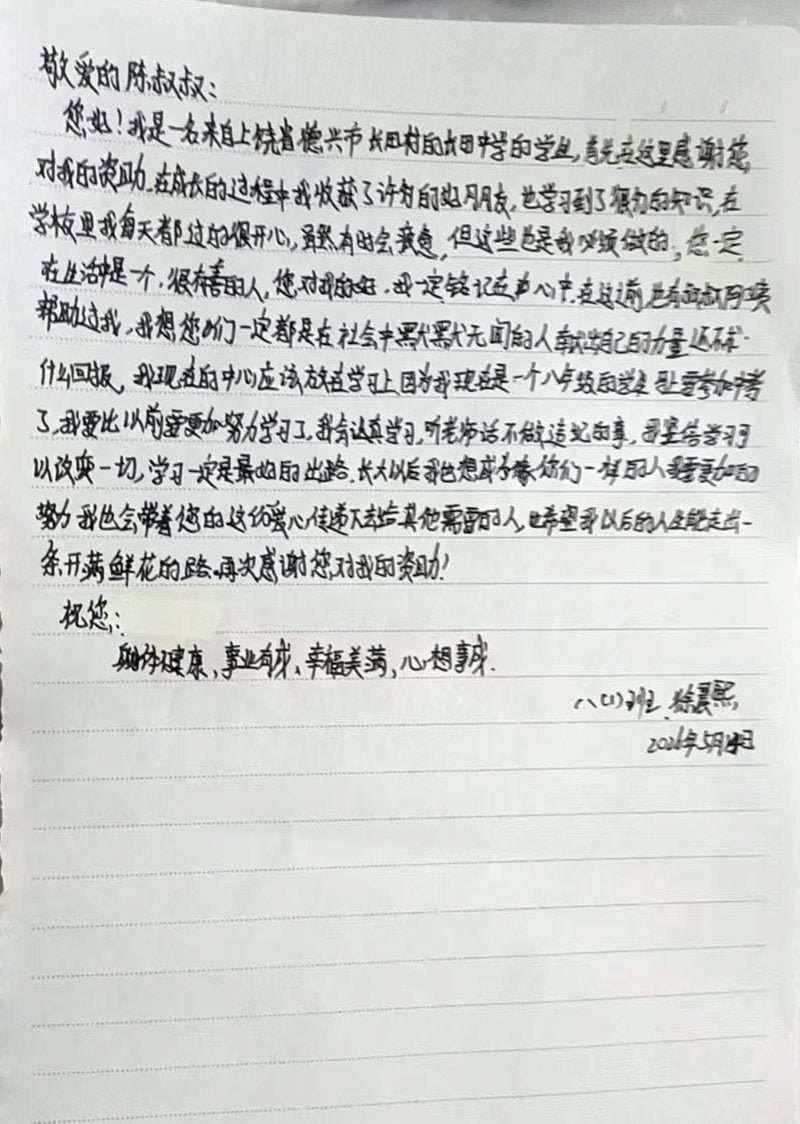 敬爱的陈叔叔：
您好！我是一名来自上饶省德兴市长田村的长田中学的学生，首先在这里感谢您
对我的资助，在成长的过程中我收获了许多的好朋友，也学习到了很多的知识，在
学校里我每天都过的很开心，虽然有时会疲惫，但这些总是我必须做的，您一定
在生活中是一个，很友善的人，您对我的好，我一定铭记在心中，在这之前，也有叔叔阿姨
帮助过我，我想您们一定都是在社会中默默无闻的人奉献出自己的力量还不求
什么回报，我现在的中心应该放在学习上因为我现在是一个八年级的学生 要参加中考
了，我要比以前需更加努力学习了，我会认真学习，听老师话不做违纪的事，我坚信学习可
以改变一切，学习一定是最好的出路，长大以后我也想成为像你们一样的人我需更加的
努力 我也会带着您的这份爱心传递下去给其他需要的人，也希望我以后的人生能走出一
条开满鲜花的路，再次感谢您对我的资助！
祝您：
身体健康、事业有成、幸福美满、心想事成.
八(1)班 徐晨熙
2026年5月日